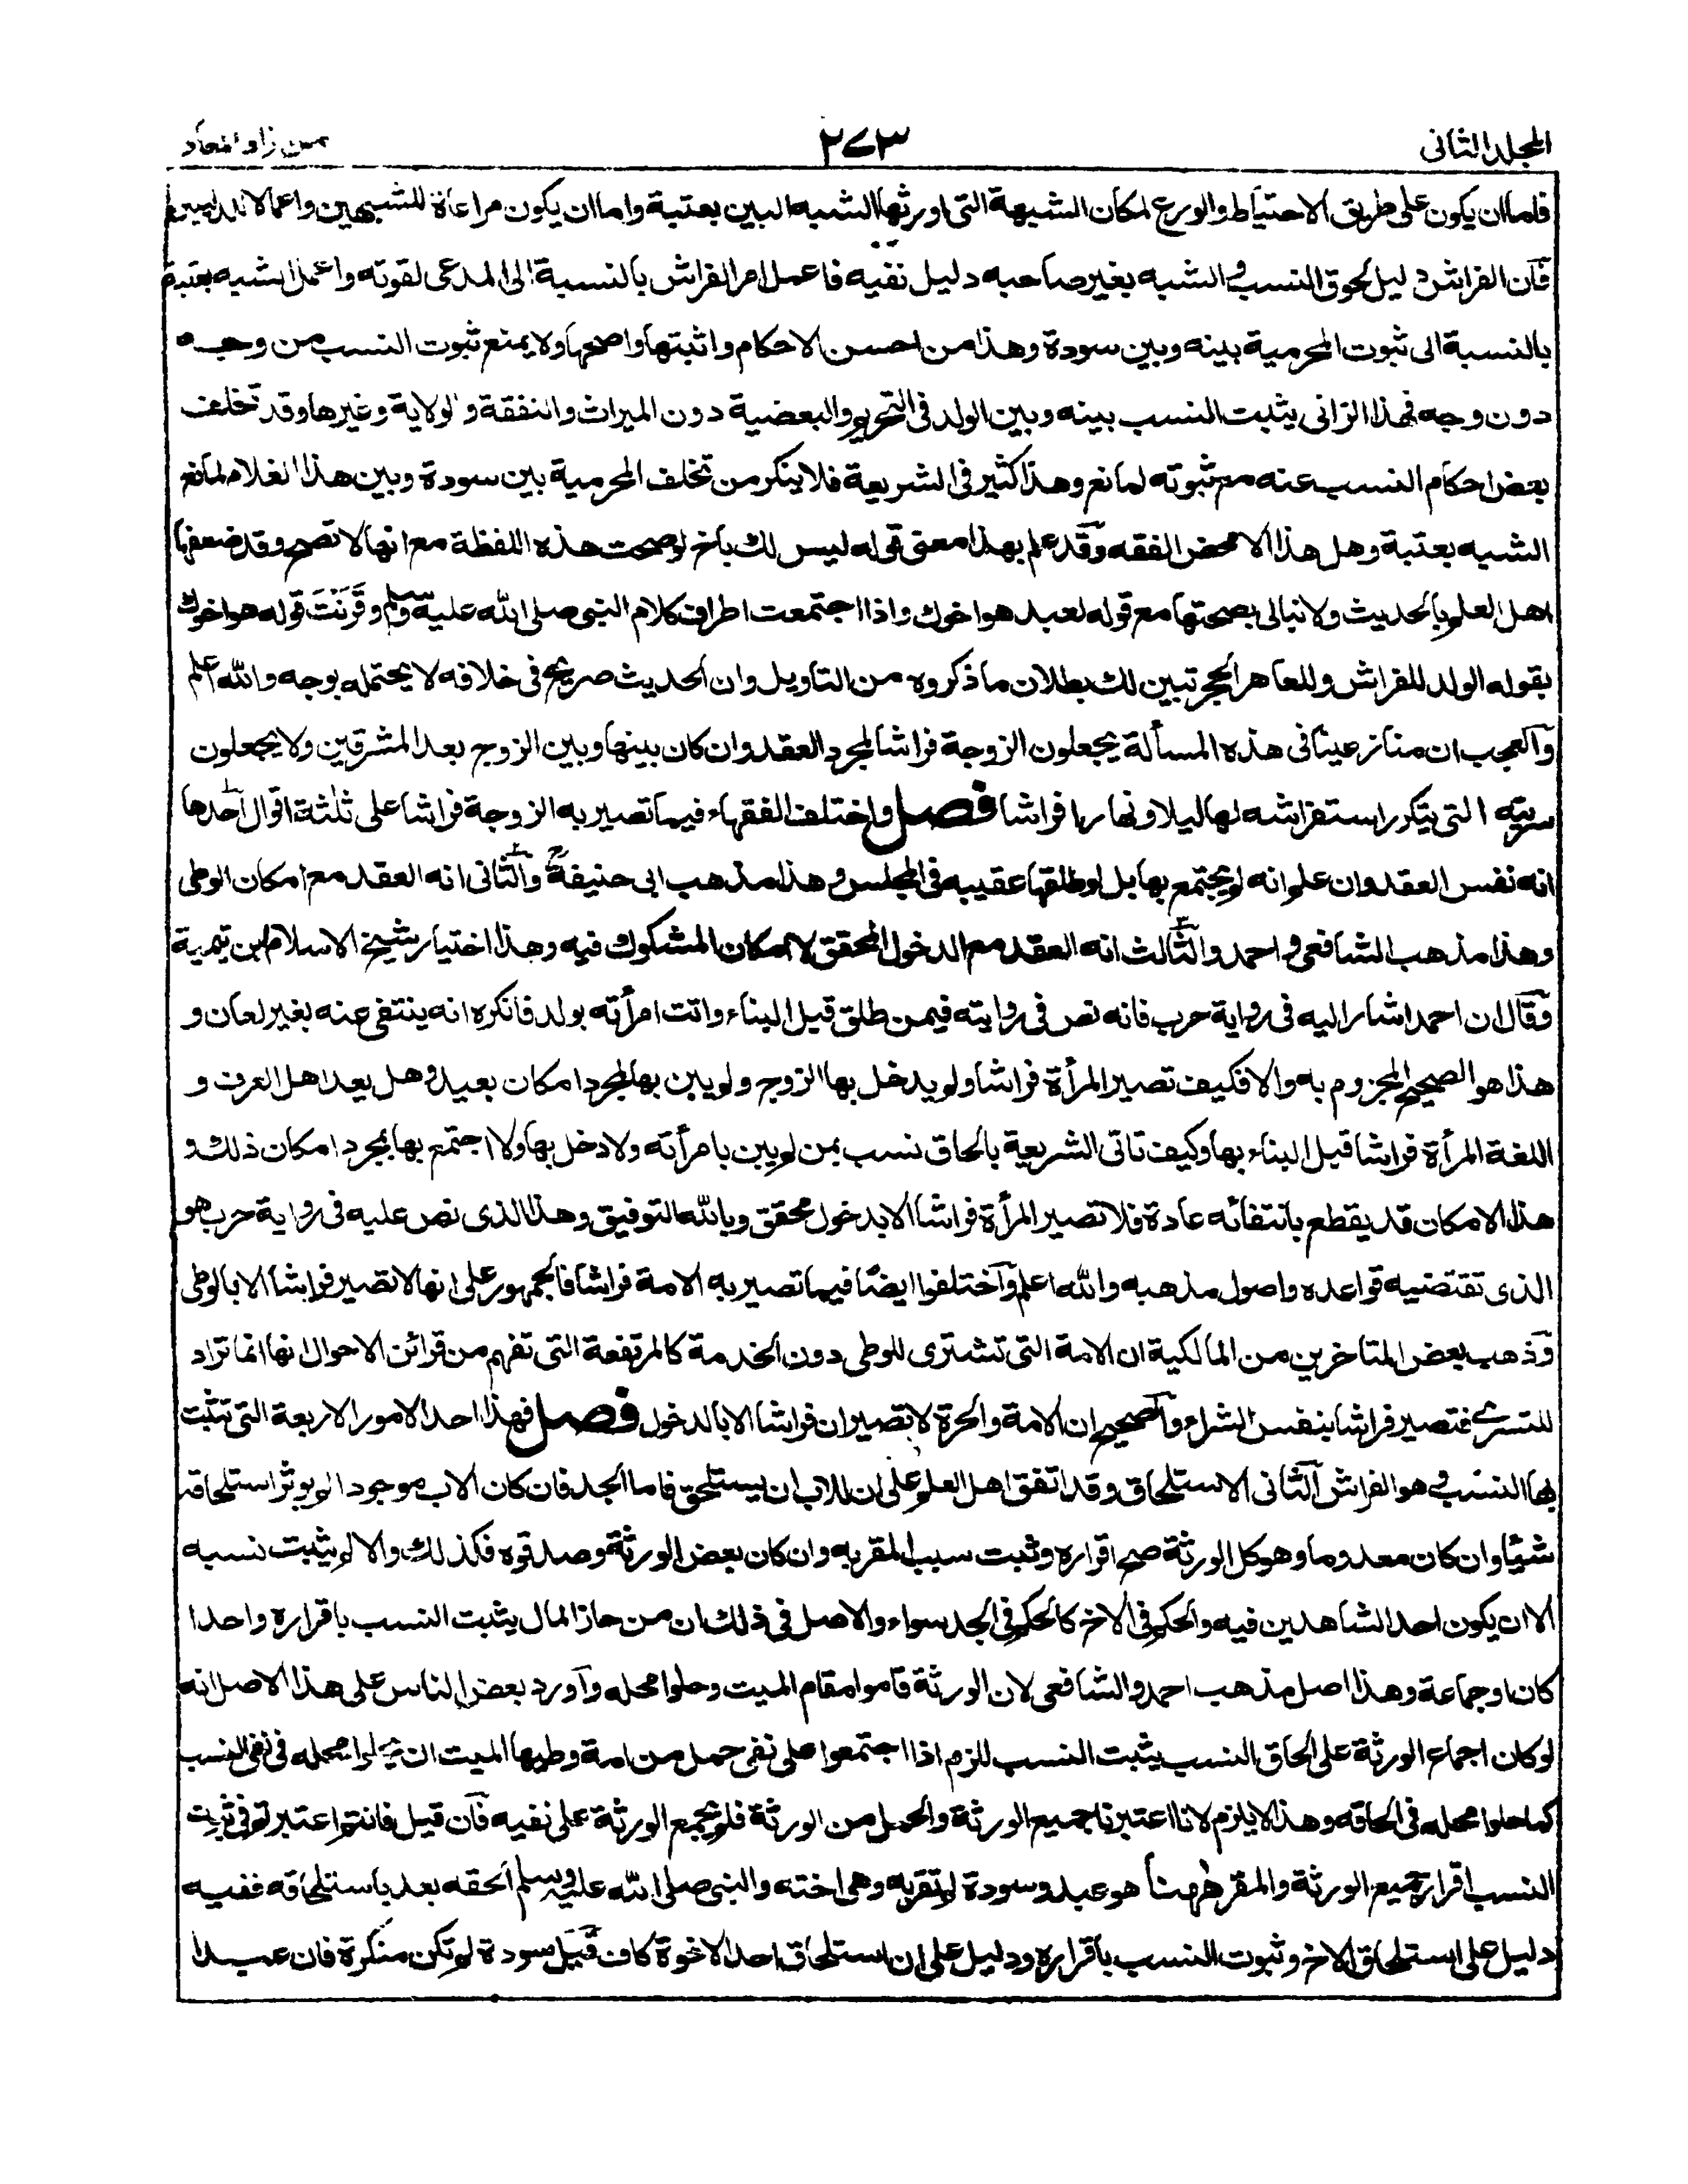 المجلد الثانى
٢٧٣
من زاد المعاد
فاما ان يكون على طريق الاحتياط والورع لمكان الشبهة التى اورثها الشبه البين بعتبة واما ان يكون مراعاة للشبهين واعمالا للدليلين
فان الفراش دليل لحوق النسب والشبه بغير صاحبه دليل نفيه فاعمل امر الفراش بالنسبة الى المدعى لقوته واعمل الشبه بعتبة
بالنسبة الى ثبوت المحرمية بينه وبين سودة وهذا من احسن الاحكام واثبتها واصحها ولا يمنع ثبوت النسب من وجه
دون وجه فهذا الزانى يثبت النسب بينه وبين الولد فى التحريم والبعضية دون الميراث والنفقة والولاية وغيرها وقد تخلف
بعض احكام النسب عنه مع ثبوته لمانع وهذا كثير فى الشريعة فلا ينكر من تخلف المحرمية بين سودة وبين هذا الغلام لمانع
الشبه بعتبة وهل هذا الا محض الفقه وقد علم بهذا معنى قوله ليس لك باخ لو صحت هذه اللفظة مع انها لا تصح وقد ضعفها
اهل العلم بالحديث ولا نبالى بصحتها مع قوله لعبد هو اخوك واذا اجتمعت اطراف كلام النبى صلى الله عليه وسلم وقرنت قوله هو اخوك
بقوله الولد للفراش وللعاهر الحجر تبين لك بطلان ما ذكروه من التاويل وان الحديث صريح فى خلافه لا يحتمله بوجه والله اعلم
والعجب ان منازعينا فى هذه المسألة يجعلون الزوجة فراشا لمجرد العقد وان كان بينها وبين الزوج بعد المشرقين ولا يجعلون
سريته التى يتكرر استفراشه لها ليلا ونهارا فراشا فصل واختلف الفقهاء فيما تصير به الزوجة فراشا على ثلثة اقوال احدها
انه نفس العقد وان علم انه لم يجتمع بها بل لو طلقها عقيبه فى المجلس وهذا مذهب ابى حنيفة والثانى انه العقد مع امكان الوطى
وهذا مذهب الشافعى واحمد والثالث انه العقد مع الدخول المحقق لا امكان المشكوك فيه وهذا اختيار شيخ الاسلام ابن تيمية
وقال ان احمد اشار اليه فى رواية حرب فانه نص فى روايته فيمن طلق قبل البناء واتت امرأته بولد فانكره انه ينتفى عنه بغير لعان و
هذا هو الصحيح المجزوم به والا فكيف تصير المرأة فراشا ولم يدخل بها الزوج ولم يبن بها لمجرد امكان بعيد وهل يعد اهل العرف و
اللغة المرأة فراشا قبل البناء بها وكيف تاتى الشريعة بالحاق نسب بمن لم يبن بامرأته ولا دخل بها ولا اجتمع بها بمجرد امكان ذلك و
هذا الامكان قد يقطع بانتفائه عادة فلا تصير المرأة فراشا الا بدخول محقق وبالله التوفيق وهذا الذى نص عليه فى رواية حرب هو
الذى تقتضيه قواعده واصول مذهبه والله اعلم واختلفوا ايضا فيما تصير به الامة فراشا فالجمهور على انها لا تصير فراشا الا بالوطى
وذهب بعض المتاخرين من المالكية ان الامة التى تشترى للوطى دون الخدمة كالمرتفعة التى تفهم من قرائن الاحوال انها انما تراد
للتسرے فتصير فراشا بنفس الشراء والصحيح ان الامة والحرة لا تصيران فراشا الا بالدخول فصل فهذا احد الامور الاربعة التى تثبت
بها النسب وهو الفراش الثانى الاستلحاق وقد اتفق اهل العلم على ان للاب ان يستلحق فاما الجد فان كان الاب موجودا لم يوثر استلحاقه
شيئا وان كان معدوما وهو كل الورثة صح اقراره وثبت سبب المقر به وان كان بعض الورثة وصدقوه فكذلك والا لم يثبت نسبه
الا ان يكون احد الشاهدين فيه والحكم فى الاخ كالحكم فى الجد سواء والاصل فى ذلك ان من حاز المال يثبت النسب باقراره واحدا
كان او جماعة وهذا اصل مذهب احمد والشافعى لان الورثة قاموا مقام الميت وحلوا محله واورد بعض الناس على هذا الاصل انه
لو كان اجماع الورثة على الحاق النسب يثبت النسب للزم اذا اجتمعوا على نفى حمل من امة وطيها الميت ان يحلوا محله فى نفى النسب
كما حلوا محله فى الحاقه وهذا لا يلزم لانا اعتبرنا جميع الورثة والحمل من الورثة فلم يجمع الورثة على نفيه فان قيل فانتم اعتبرتم فى ثبوت
النسب اقرار جميع الورثة والمقر ههنا هو عبد وسودة لم تقر به وهى اخته والنبى صلى الله عليه وسلم الحقه بعبد باستلحاقه ففيه
دليل على استلحاق الاخ وثبوت النسب باقراره ودليل على ان استلحاق احد الاخوة كاف قيل سودة لم تكن منكرة فان عبدا